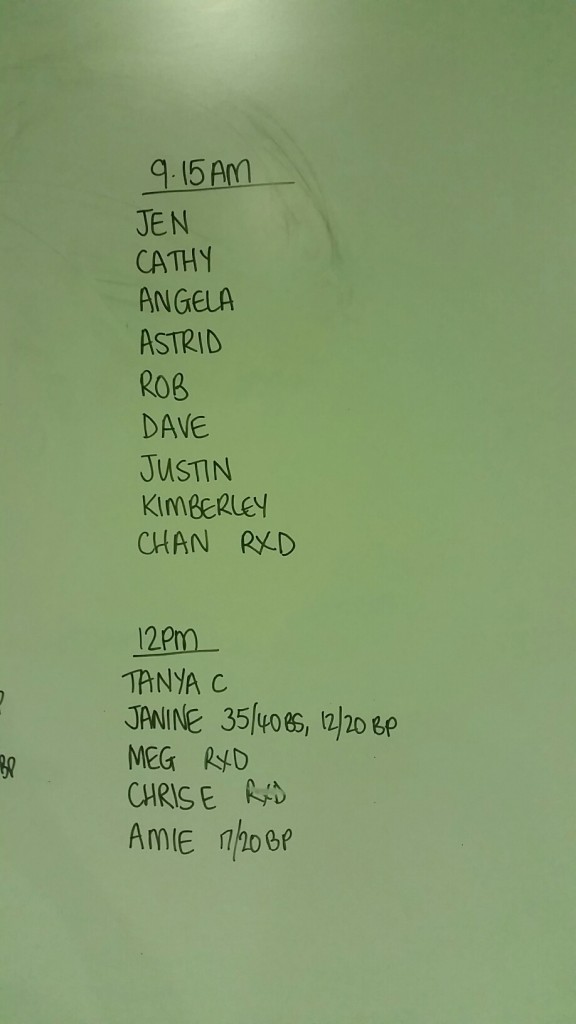 9.15AM
JEN
CATHY
ANGELA
ASTRID
ROB
DAVE
JUSTIN
KIMBERLEY
CHAN RXD
12PM
TANYA C
JANINE 35/40 BS, 12/20 BP
MEG RXD
BP
CHRIS E RXD
AMIE 17/20 BP